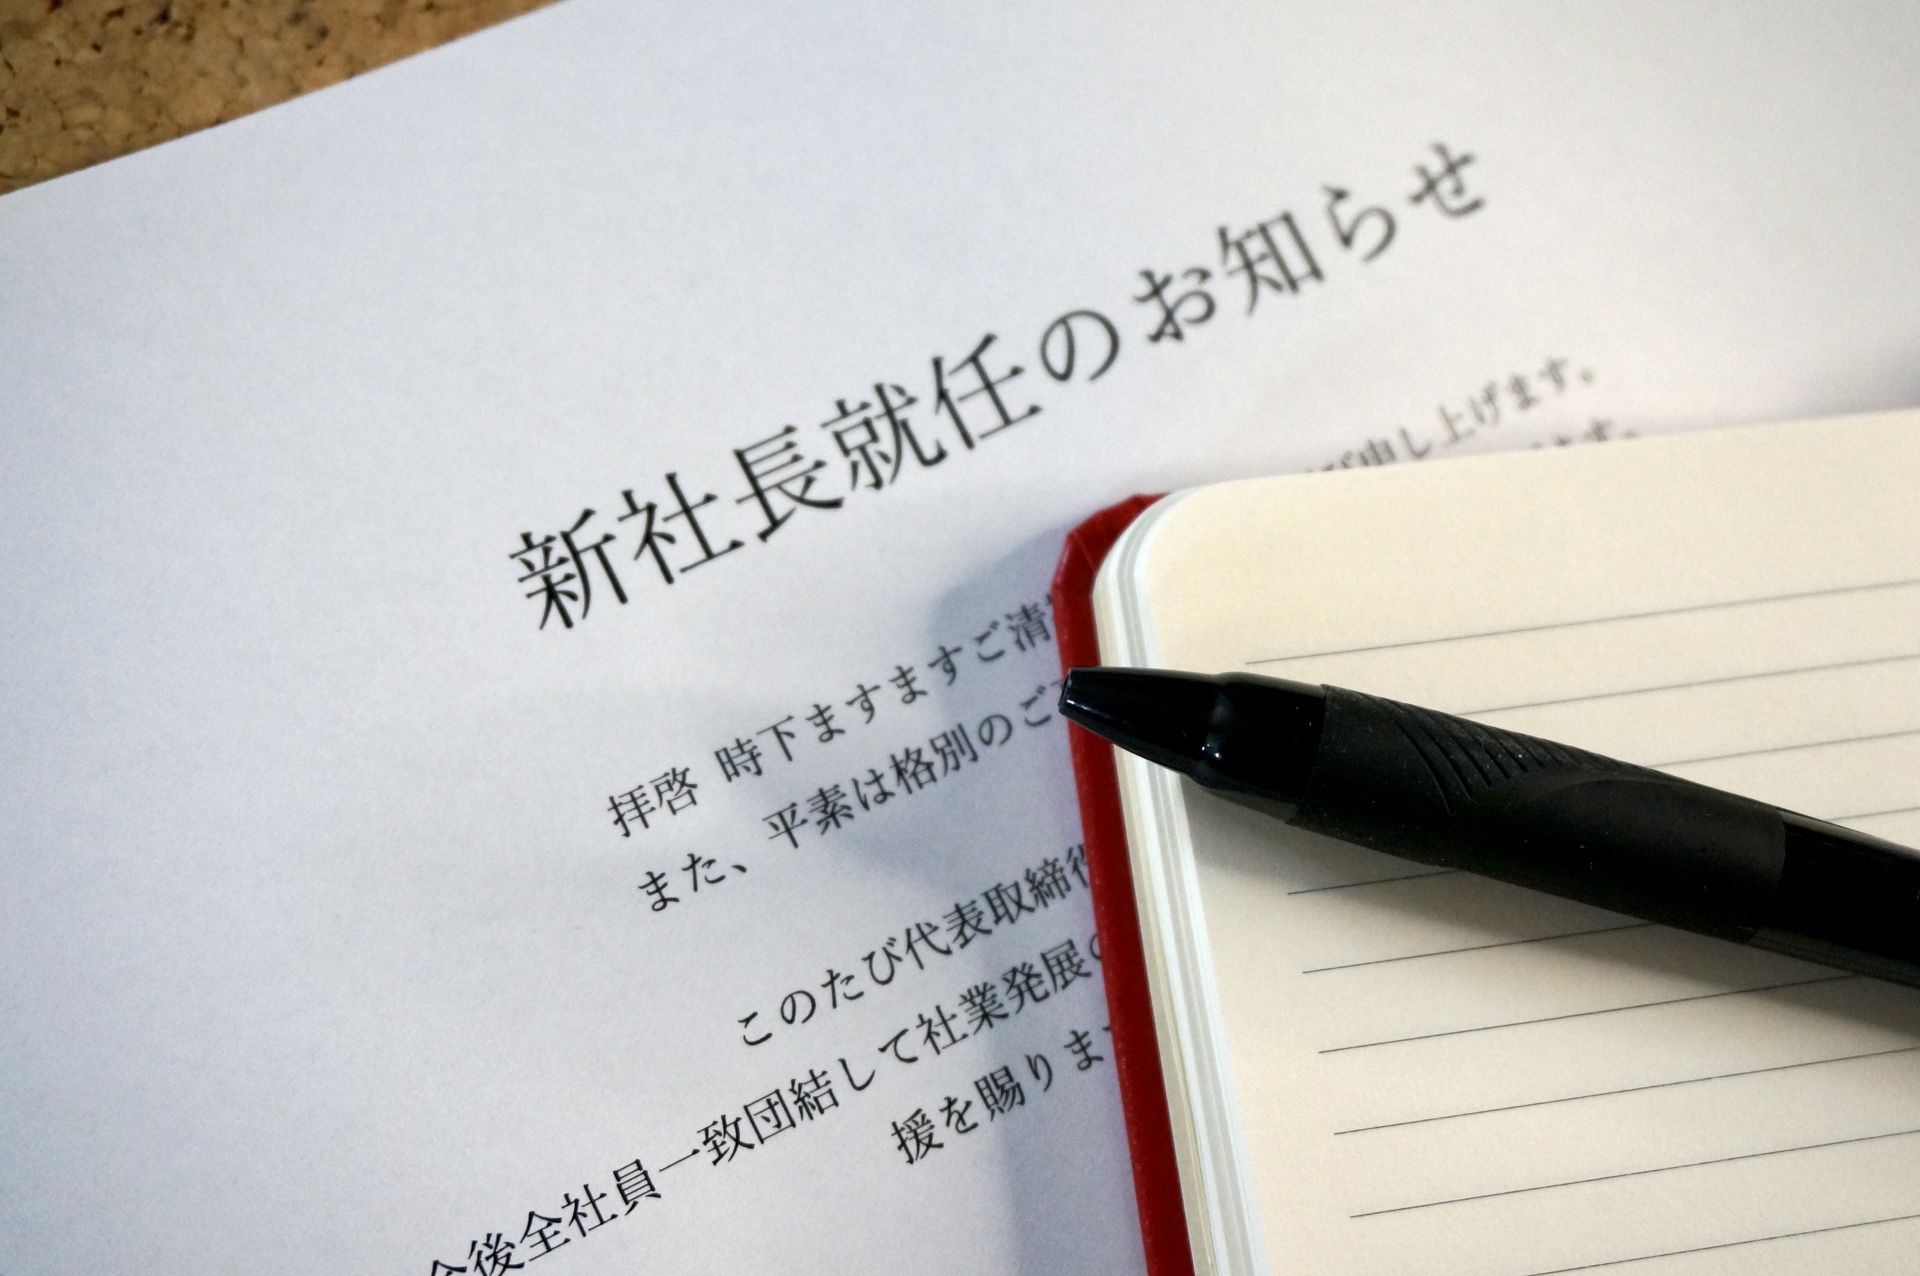 新社長就任のお知らせ
拝啓 時下ますますご清 び申し上げます。
また、平素は格別のご ます。
このたび代表取締役
今後全社員一致団結して社業発展の
援を賜りま